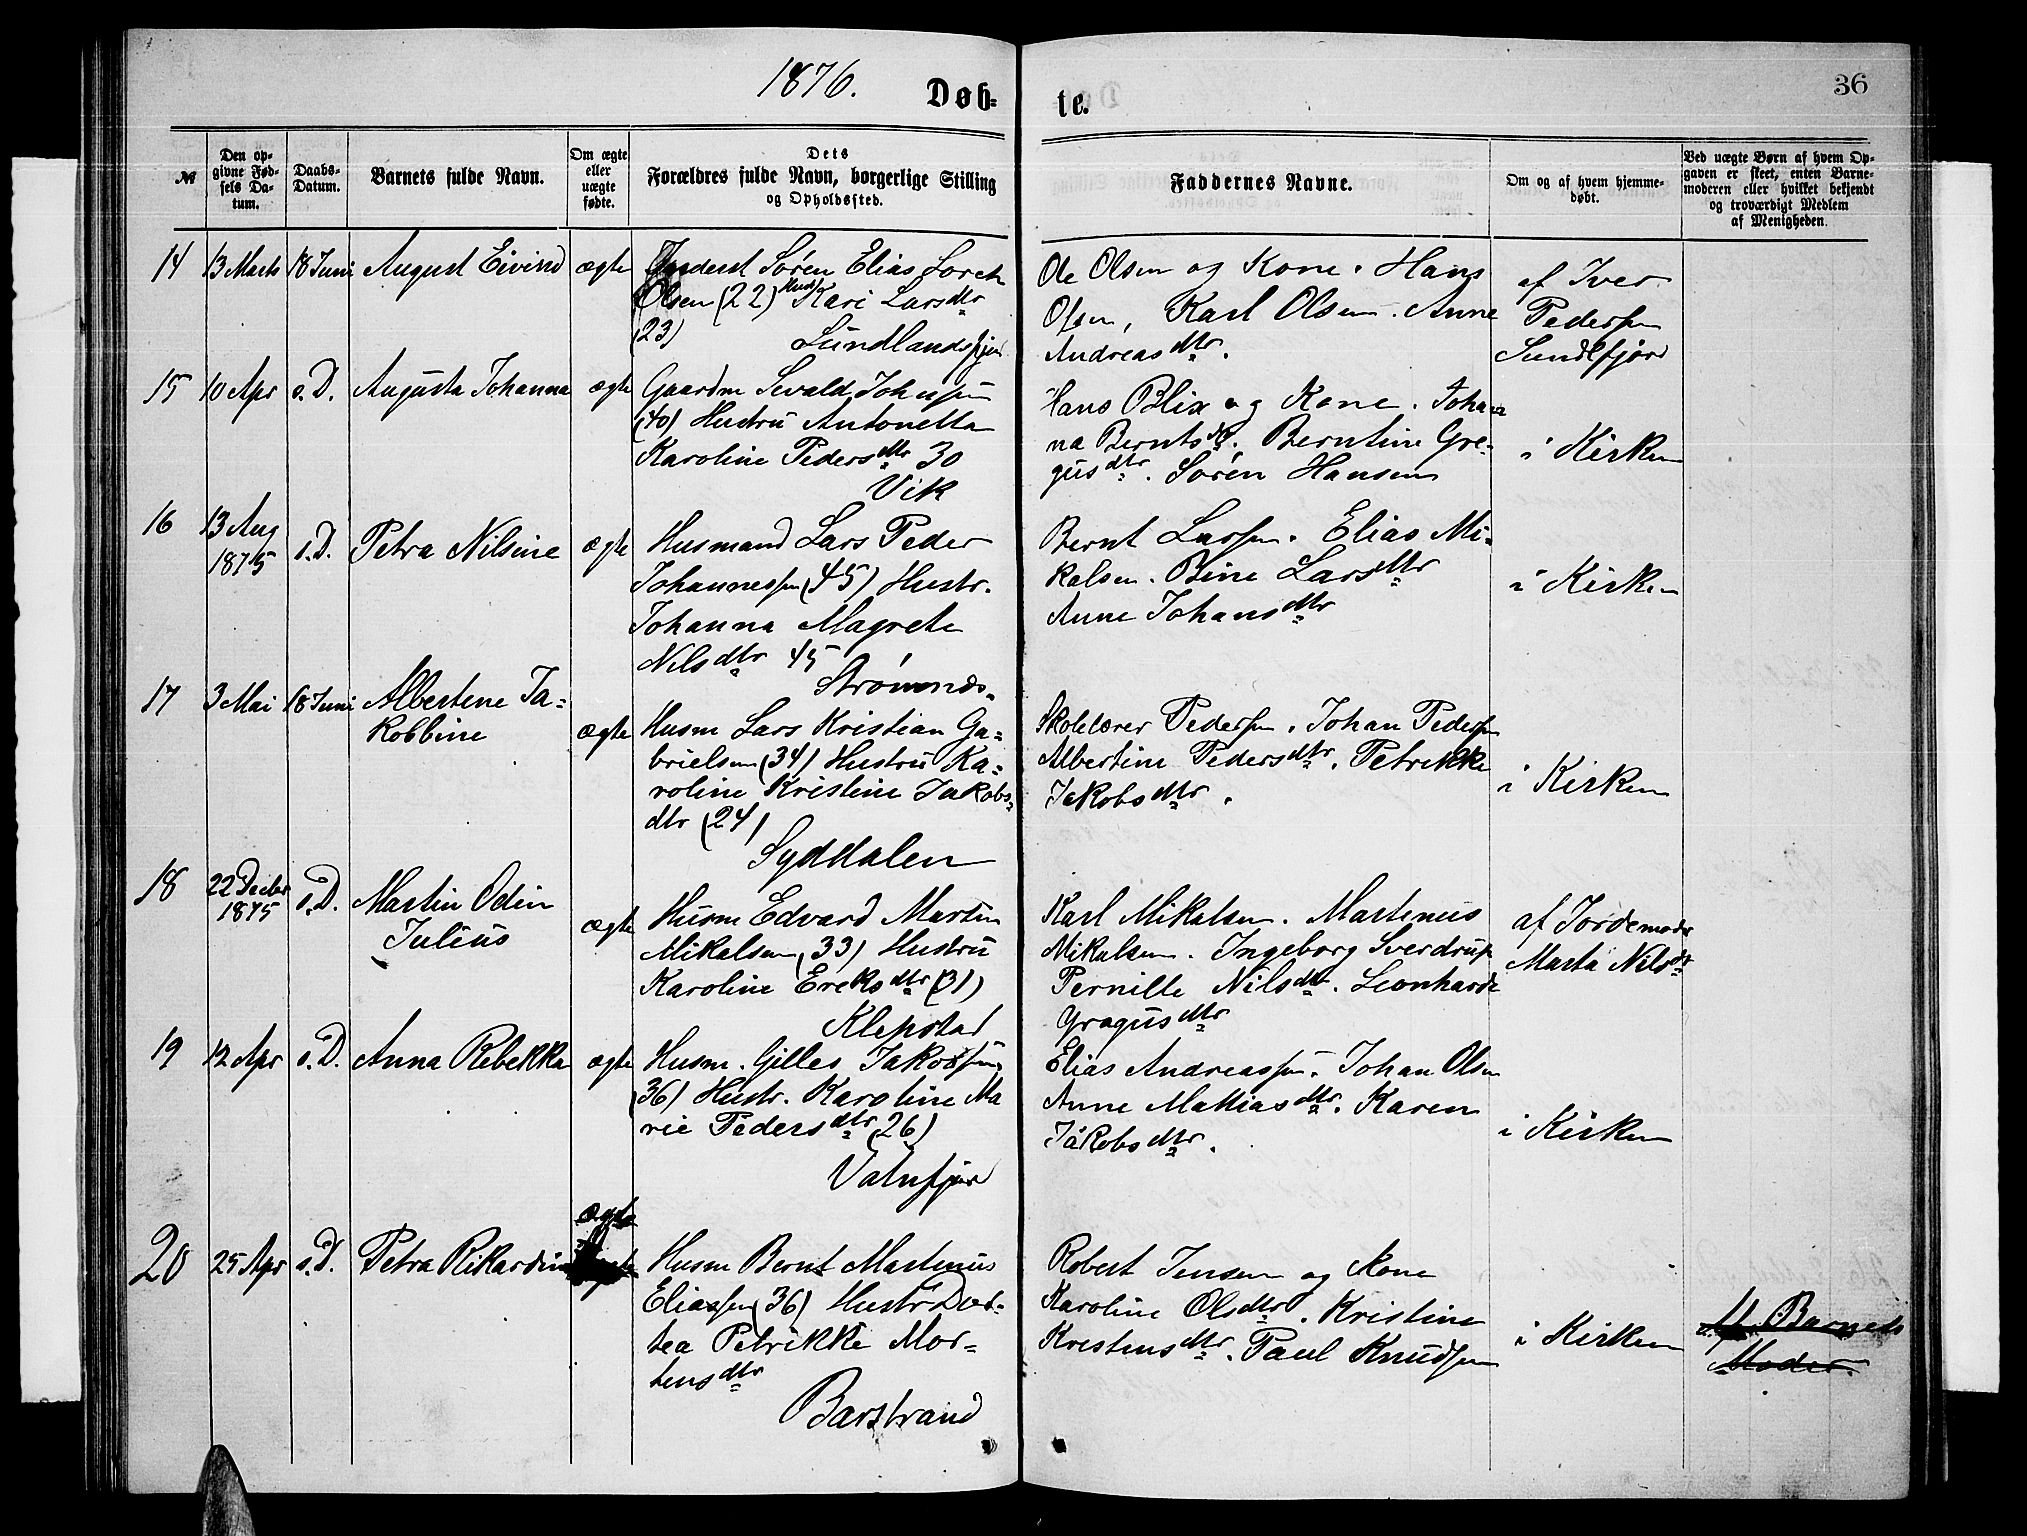 1876.
Døb-
te.
36
№
Den op-
givne Fød-
sels Da-
tum.
Daabs-
Datum.
Barnets fulde Navn.
Om ægte
eller
uægte
fødte.
Dets
Forældres fulde Navn, borgerlige Stilling
og Opholdssted.
Faddernes Navne.
Om og af hvem hjemme-
døbt.
Ved uægte Børn af hvem Op-
gaven er skeet, enten Barne-
moderen eller hvilket bekjendt
og troværdigt Medlem
af Menigheden.
14 13 Marts 18 Juni August Eivind ægte
Inderst Søren Elias Lorch
Olsen (22) Hust Kari Larsdtr
(23)
Sundlandsfjor
Ole Olsen og Kone. Hans
Olsen, Karl Olsen. Anne
Andreasdtr.
af Iver
Pedersen
Sundlfjord
15 10 Apr s.D. Augusta Johanna ægte
Gaardm Sevald Johnsen
(40) Hustru Antonetta
Karoline Pedersdtr 30
Vik
Hans Blix og Kone. Johan
na Berntsdtr. Berntine Gre-
gusdtr. Søren Hansen
i Kirken
16 13 Aug
1875 s.D. Petra Nilsine ægte
Husmand Lars Peder
Johannessen (45) Hustr.
Johanna Magrete
Nilsdtr 45
Strømnæs.
Bernt Larssen. Elias Mi-
kalsen. Bine Larsdtr
Anne Johansdtr
i Kirken
17 3 Mai 18 Juni Albertene Ja-
kobbine ægte
Husm Lars Kristian Ga-
brielsen (34) Hustru Ka-
roline Kristine Jakobs-
dtr (24)
Syddalen
Skolelærer Pedersen. Johan Pedersen
Albertine Pedersdtr. Petrikke
Jakobsdtr.
i Kirken
18 22 Decbr
1875 s.D. Martin Odin
Julius ægte
Husm Edvard Martin
Mikalsen (33) Hustru
Karoline Ereksdtr (31)
Klepstad
Karl Mikalsen. Martinus
Mikalsen. Ingeborg Sverdrup
Pernille Nilsdtr. Leonharde
Gragusdtr
af Jordemodr
Marta Nilsdtr
19 12 Apr s.D. Anna Rebekka ægte
Husm. Gilles Jakobsen
(36) Hustr. Karoline Ma
rie Pedersdtr (26)
Vatnfjor
Elias Andreassen. Johan Olsen
Anne Mathiasdtr. Karen
Jakobsdtr.
i Kirken
20 25 Apr s.D. Petra Rikardine ægte
Husm Bernt Martinus
Eliassen (36) Hustr Dor-
tea Petrikke Mor-
tensdtr
Barstrand
Robert Jensen og Kone
Karoline Olsdtr. Kristine
Kristensdtr. Paul Knudsen
i Kirken
Af Barnets
Moder.